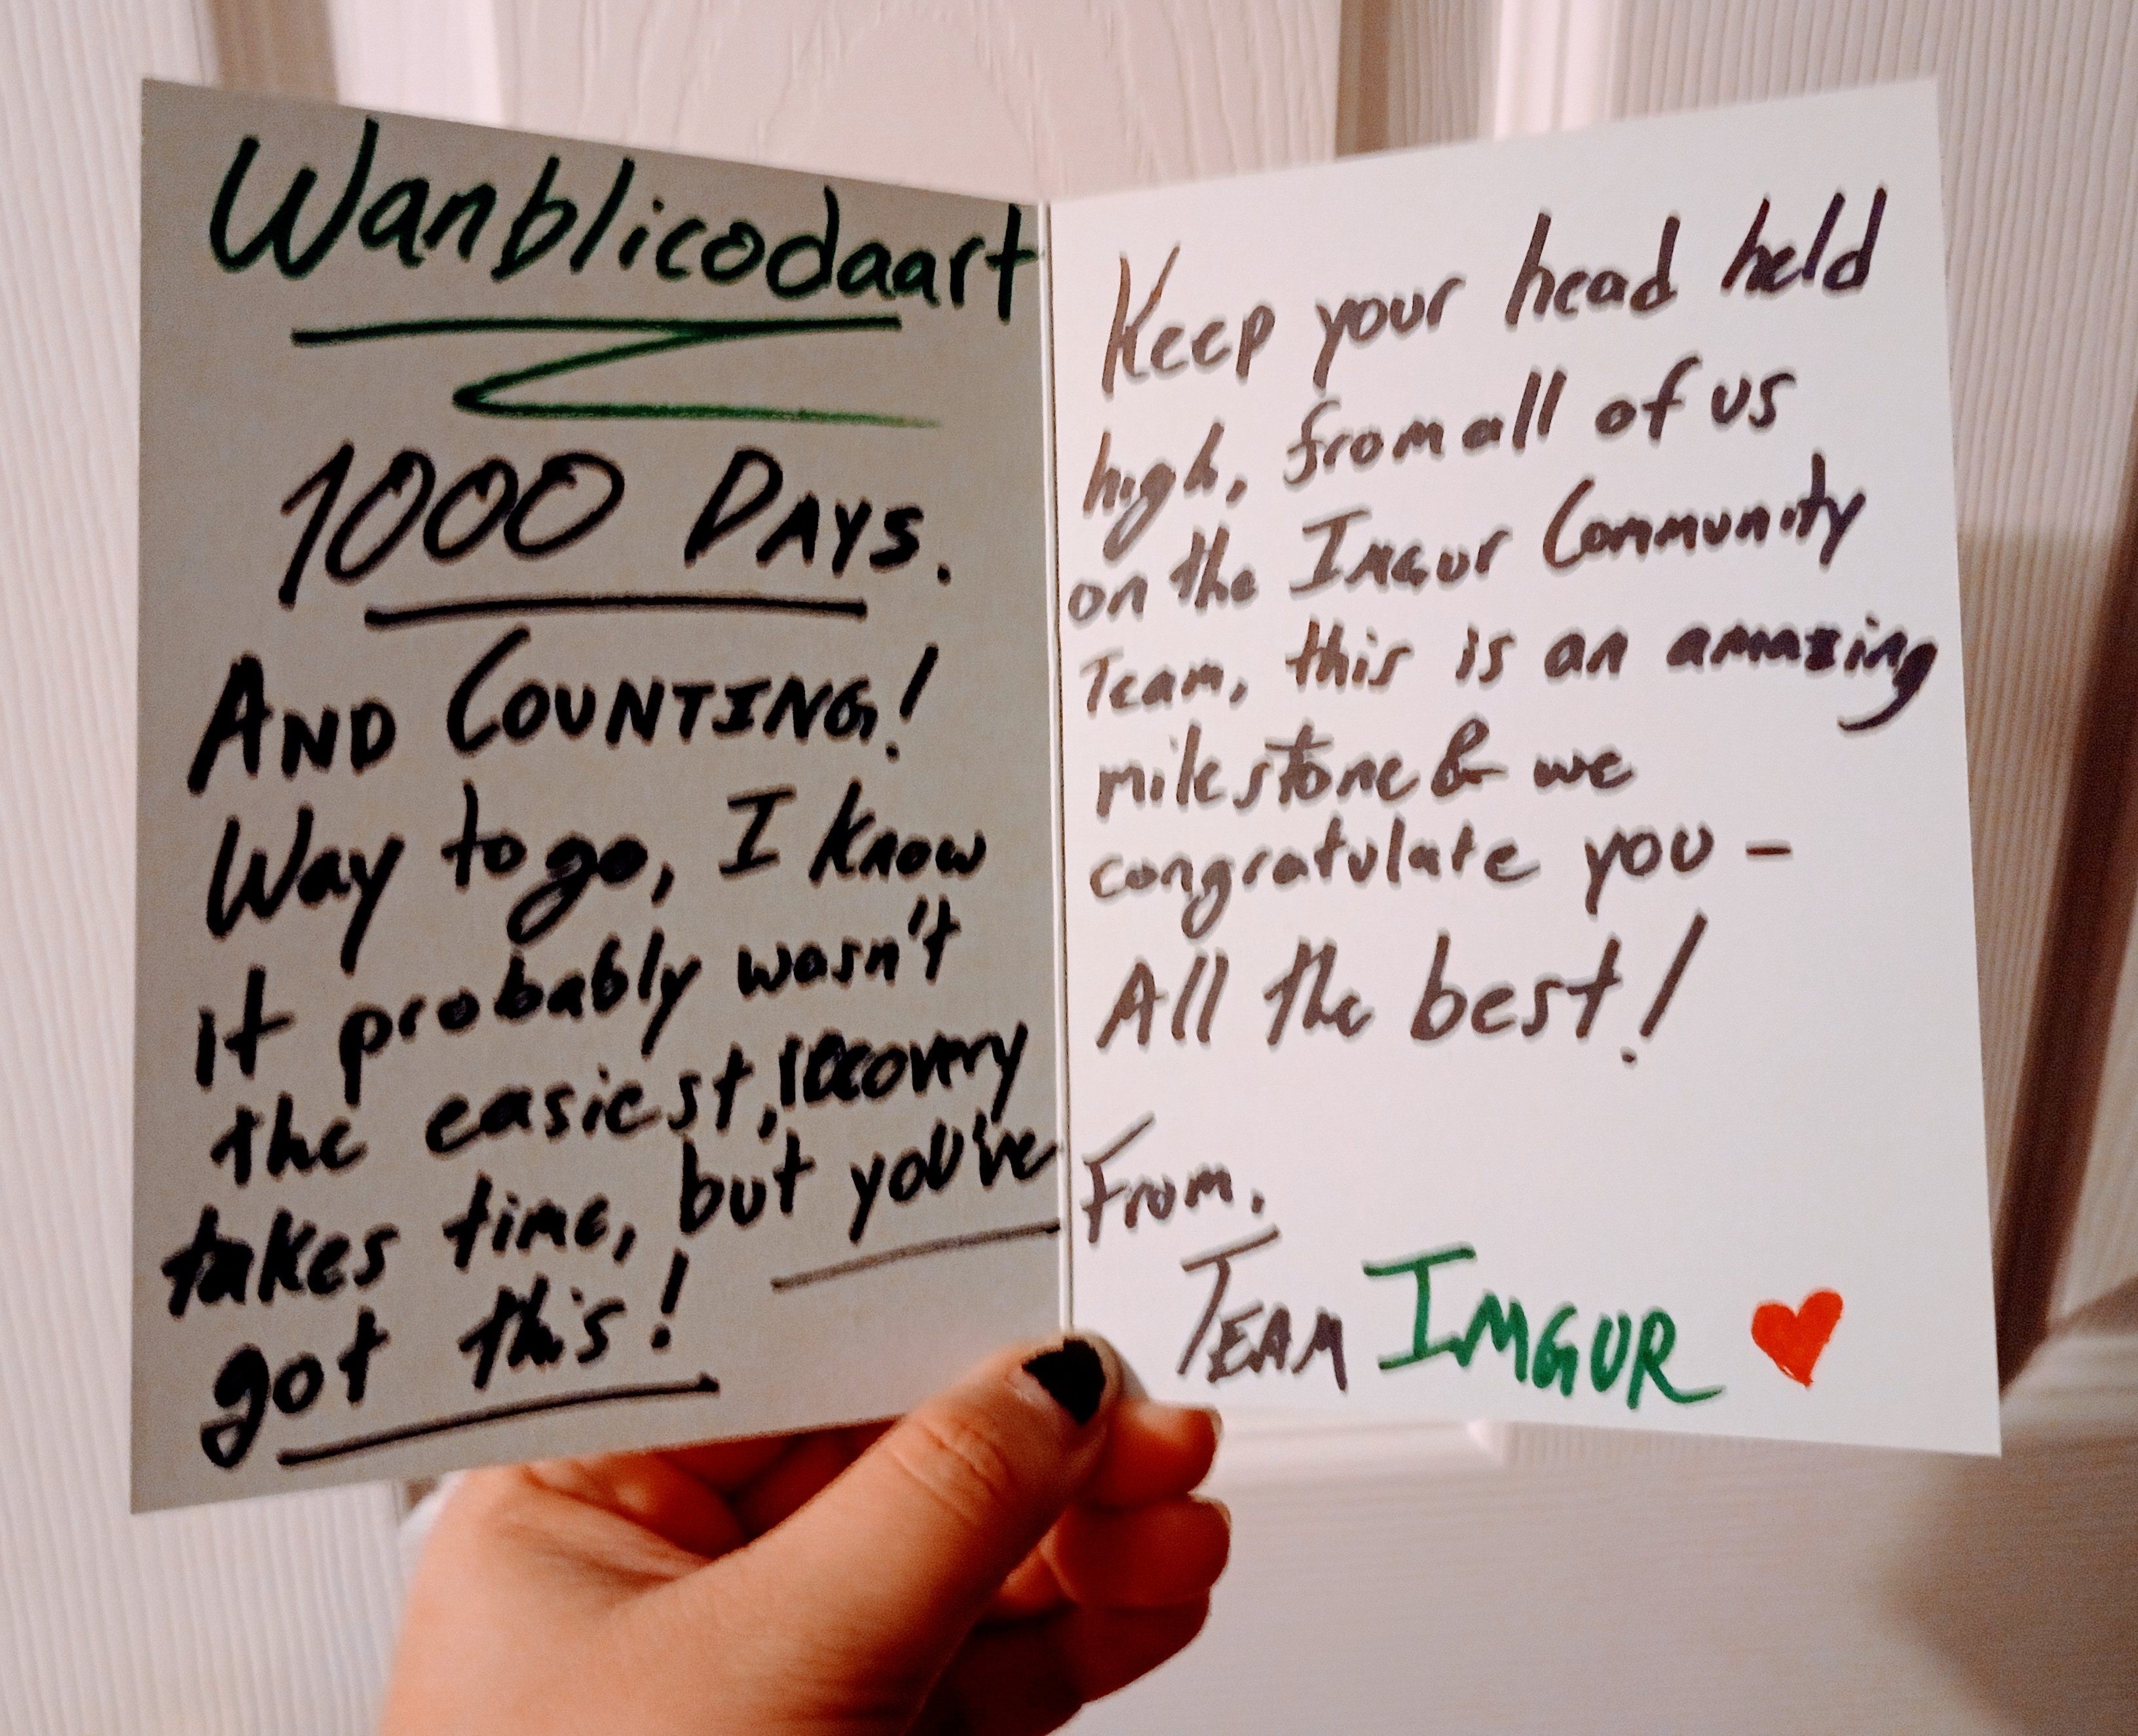 Wanblicodaart
1000 DAYS.
AND COUNTING!
Way to go, I know
it probably wasn't
the easiest, recovery
takes time, but you've
got this!
Keep your head held
high, from all of us
on the Imgur Community
Team, this is an amazing
milestone & we
congratulate you -
All the best!
From,
TEAM IMGUR ❤